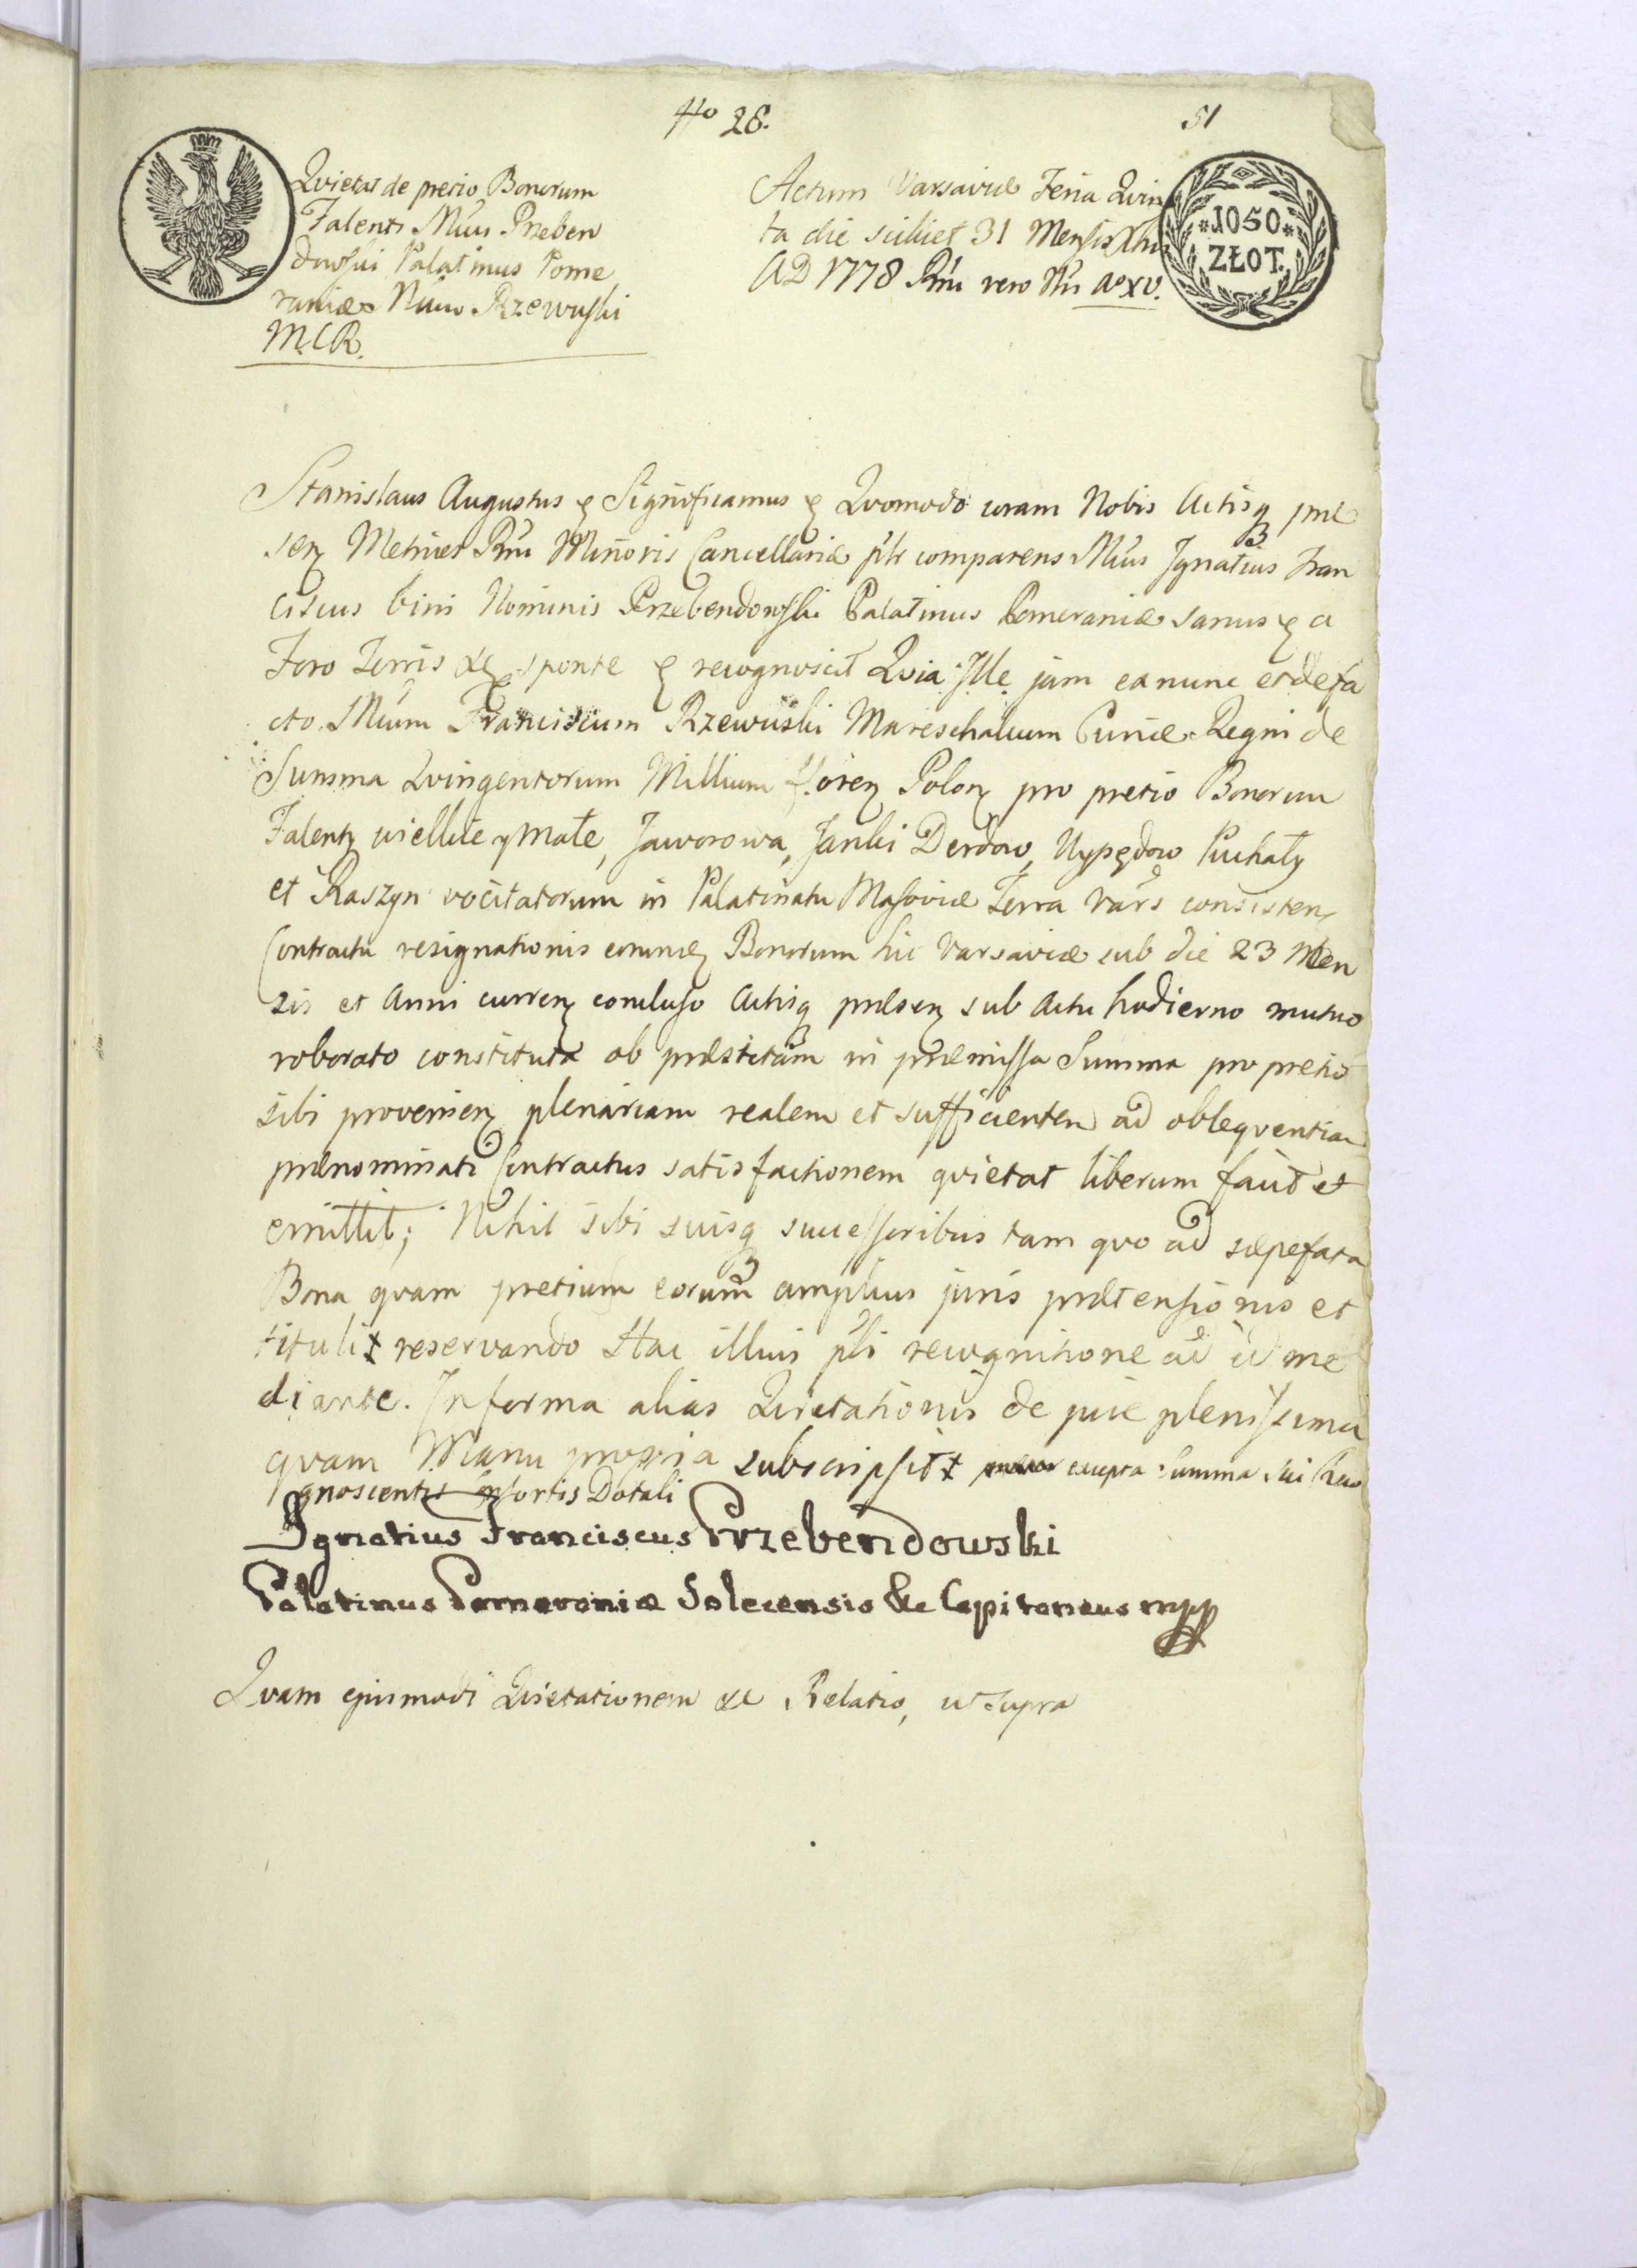 No 28.
51
Qvietas de pretio Bonorum
Falenti Mūus Przeben
dowski Palatinus Pome
raniæ Mūuo Rzewuski
M.C.R.
Actum Varsaviæ Feria Qvin
ta die scilicet 31 Mensis Xbris
AD 1778 Rñi vero Nri Ao XV.
*1050*
ZŁOT.
Stanislaus Augustus Significamus Qvomodo coram Nobis Actisq præ
sen Metrices Rñi Minoris Cancellariæ plr comparens Mūus Ignatius Fran
ciscus bini Nominis Przebendowski Palatinus Pomeraniæ sanus a
Foro Terris &c sponte recognoscit Qvia Ille jam ea nunc et de fa
cto Mūum Franciscum Rzewuski Mareschalcum Curiæ Regni de
Summa Qvingentorum Millium floren Polon pro pretio Bonorum
Falenty wielkie y małe, Jaworowa, Janki Derdow, Wypędow Puchały
et Raszyn vocitatorum in Palatinatu Masoviæ Terra Vars consisten
Contractu resignationis eorund Bonorum hic Varsaviæ sub die 23 Men
sis et Anni curren concluso Actisq præsen sub Actu hodierno mutuo
roborato constituta ob præstitam in præmissa Summa pro pretio
sibi provenien plenariam realem et sufficientem ad obleqventiam
prænominati Contractus satisfactionem qvietat liberum facit et
emittit; Nihil sibi suisq successoribus tam qvo ad sæpefata
Bona qvam pretium eorum amplius juris prætensionis et
tituli ‡ reservando Hac illius pli recognitione ad id me
diante. In forma alias Qvietationis de jure plenissima
qvam Manu propria subscripsit ‡ excepta Summa Sui Reco
gnoscentis Consortis Dotali
Ignatius Franciscus Przebendowski
Palatinus Pomeraniæ Solecensis &c Capitaneus mpp
Qvam ejusmodi Qvietationem &c Relatio, ut supra